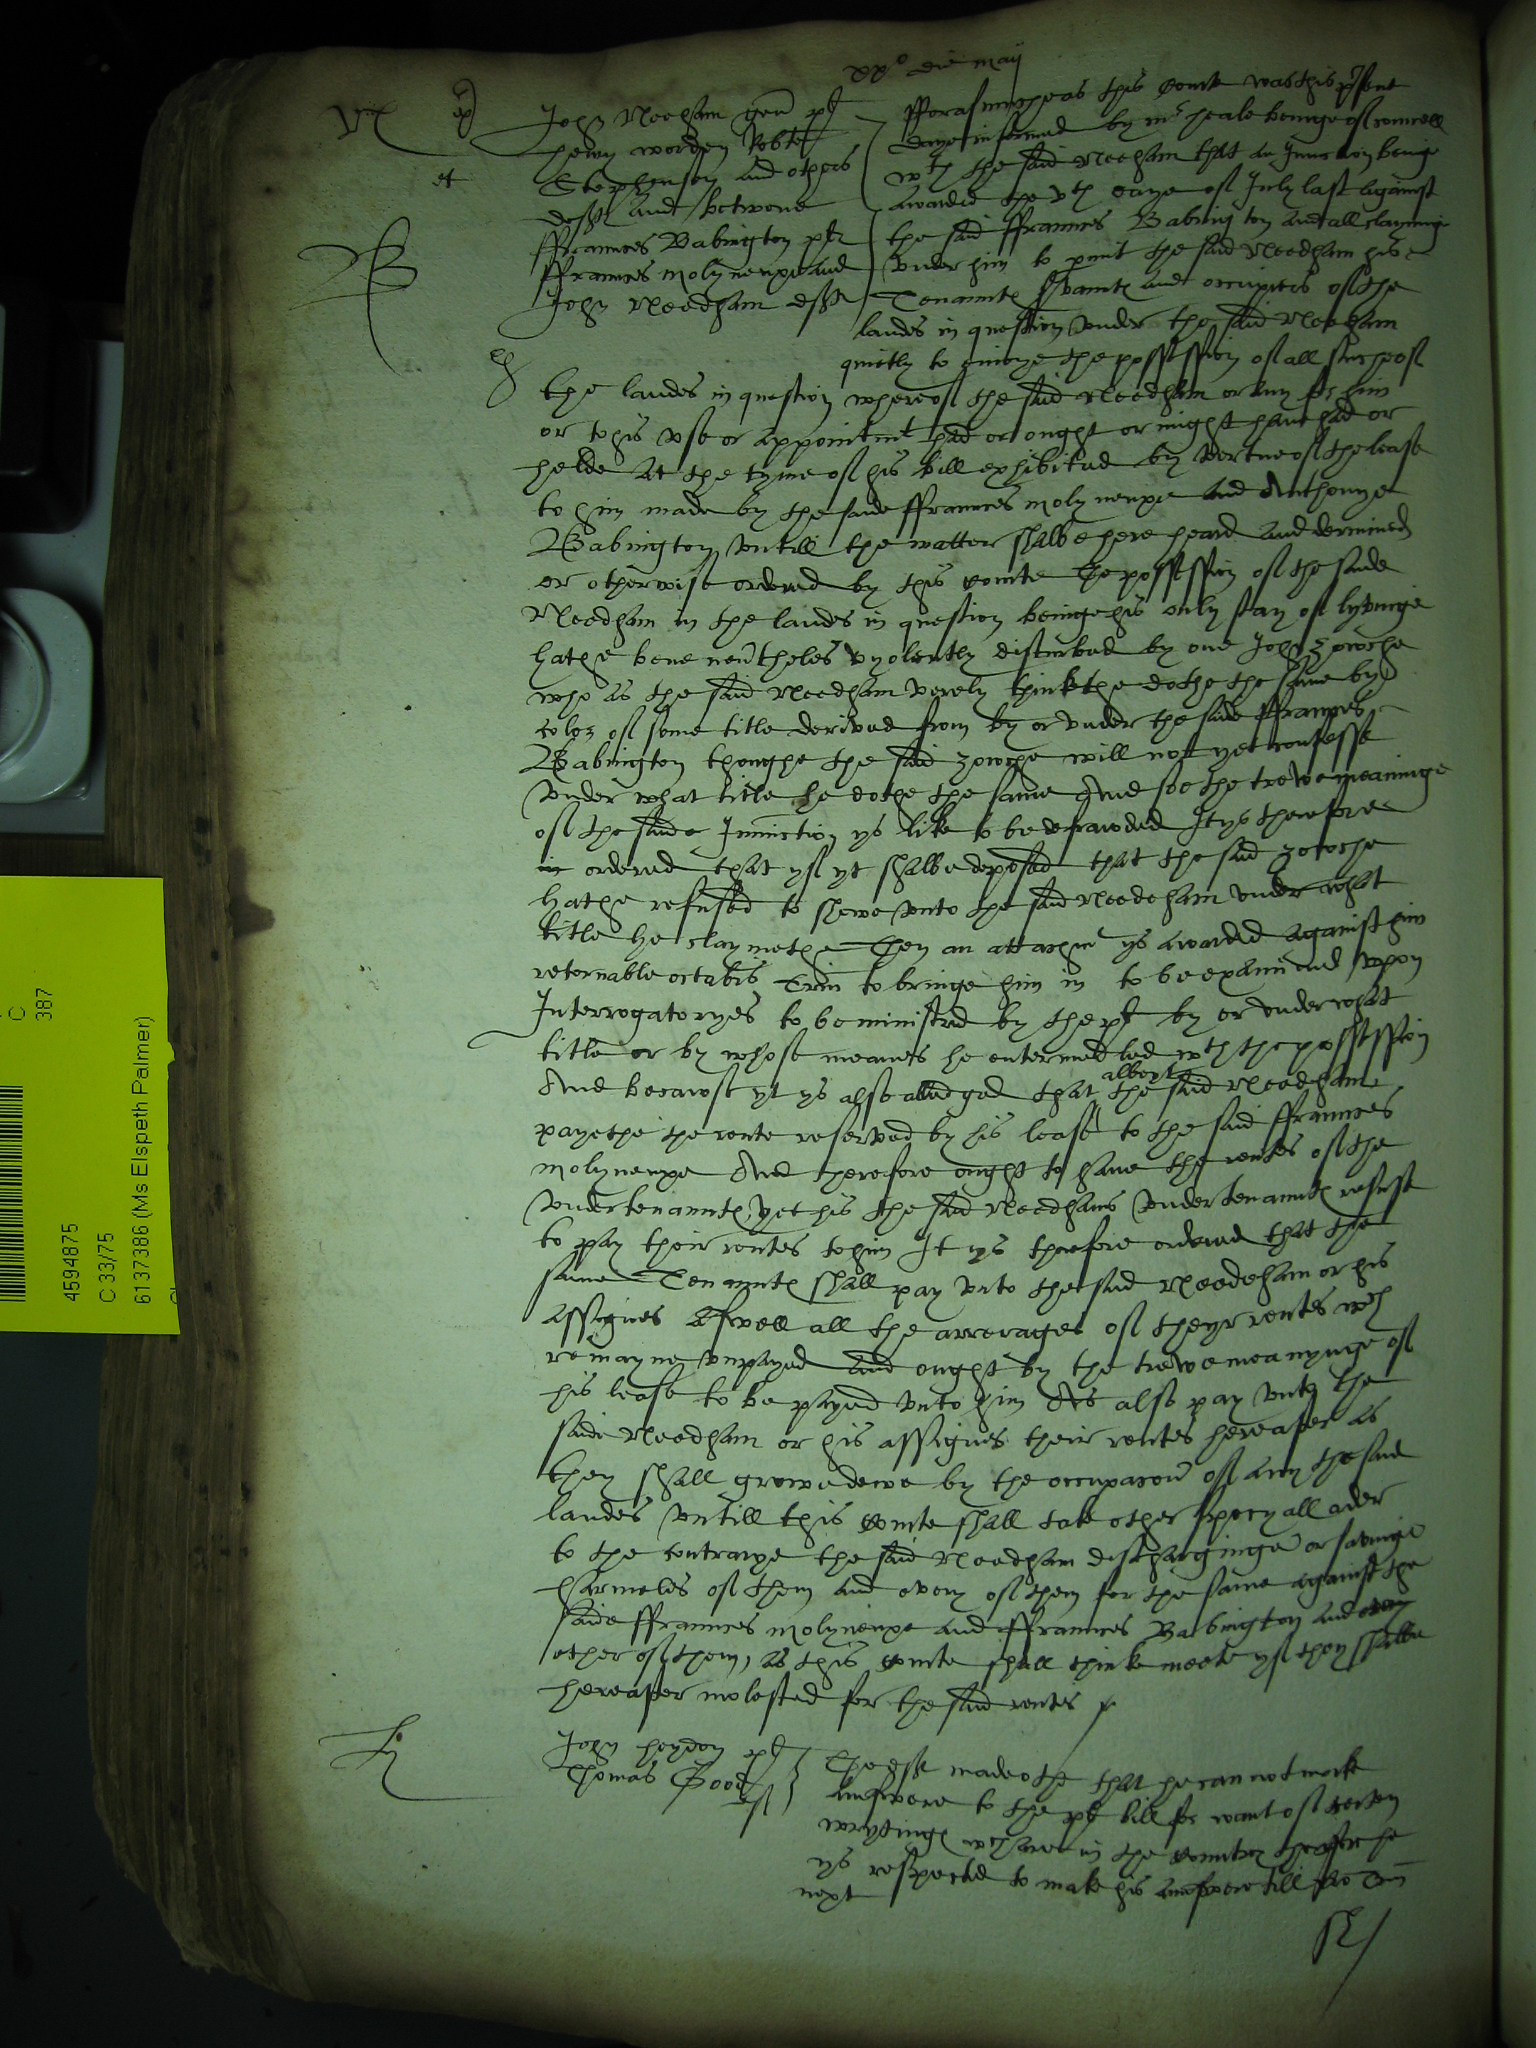 xx° die maij
John Needham gen pl
henry worden Robte
Stephenson and others
deftes And betwene
ffraunces Babington pl
ffraunces molyneuxe and
John Needham deftes
fforasmuche as this Courte was this p͏sent
daye informed by mr heale beinge of councell
wth the said Needham that an Iniunccion beinge
awarded the vth daye of July last against
the said ffraunces Babington and all clayminge
vnder him to permit the said Needham his
Tenauntes s͏vauntes and occupiers of the
landes in question vnder the said Needham
quietly to enioye the possession of all suche of
the landes in question whereof the said Needham or any for him
or to his vse or appointmt had or ought or might have had or
helde at the tyme of his bill exhibited by vertue of the lease
to him made by the saide ffraunces molyneuxe and Anthonye
Babington vntill the matter shalbe here heard and determined
or otherwise ordered by this courte The possession of the saide
Needham in the landes in question beinge his only stay of lyvinge
hathe bene nevertheles vyolently disturbed by one John Zowche
who as the said Needham verely thinkethe dothe the same by
color of some title derived from by or vnder the said ffraunces
Babington thoughe the said Zowche will not yet confesse
vnder what title he dothe the same And soe the trewe meaninge
of the saide Iniunction ys like to be defrawded It ys therefore
ordered that yf yt shalbe deposed that the said Zowche
hathe refused to shewe vnto the said Needeham vnder what
title he claymethe Then an attachmt ys awarded against him
retornable octabis Trin to bringe him in to be examined vpon
Interrogatoryes to be ministred by the pl by or vnder what
title or by whose meanes he entermedled wth the possession
And because yt ys also alledged that albeyt the said Needham
payethe the rente reserved by his lease to the said ffraunces
molyneuxe And therefore ought to have the rentes of the
vndertenauntes, yet his the said Needhams vndertenauntes refuse
to pay their rentes to him It ys therefore ordered that the
same Tenauntes shall pay vnto the said Needeham or his
assignes aswell all the arrerages of theyr rentes wch
remayne vnpayed and ought by the trewe meanynge of
his lease to be payed vnto him As also pay vnto the
saide Needham or his assignes their rentes hereafter as
they shall growe dewe by the occupacon of any the said
landes vntill this courte shall take other specyall order
to the contrarye the said Needham discharginge or savinge
harmeles of them and every of them for the same against the
saide ffraunces molyneuxe and ffraunces Babington and every
other of them, as this courte shall thinke meete yf they shalbe
hereafter molested for the said rentes
John heydon pl
Thomas Good def
The deft made othe that he can not make
Answere to the pl bill for want of certen
wrytinges wch are in the countrey therefore he
ys respected to make his answere till
next
4594875
C 33/75
6137386 (Ms Elspeth Palmer)
C
387